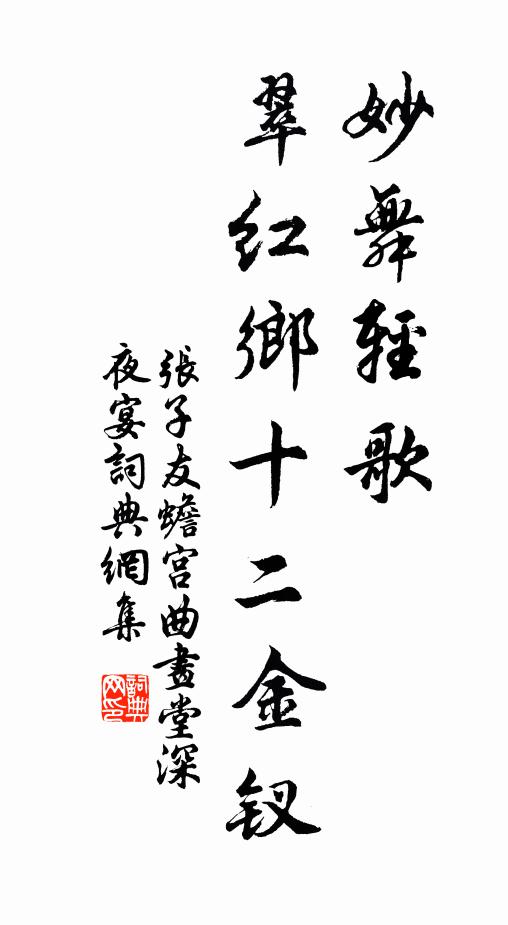 妙舞輕歌
翠紅鄉十二金釵
張子友蟾宮曲畫堂深
夜宴詞典網集
詞典网印